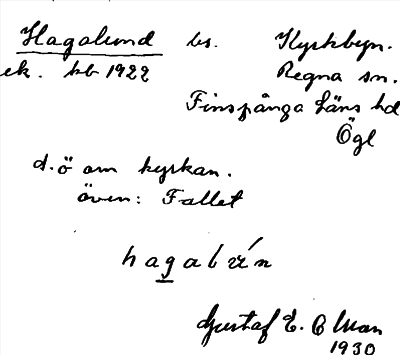 Hagalund bs. Kyrkbyn.
ek. kb 1922 Regna sn.
Finspånga läns hd
Ögl
d. ö om kyrkan.
även: Fallet
Gustaf E. Ollman
1930